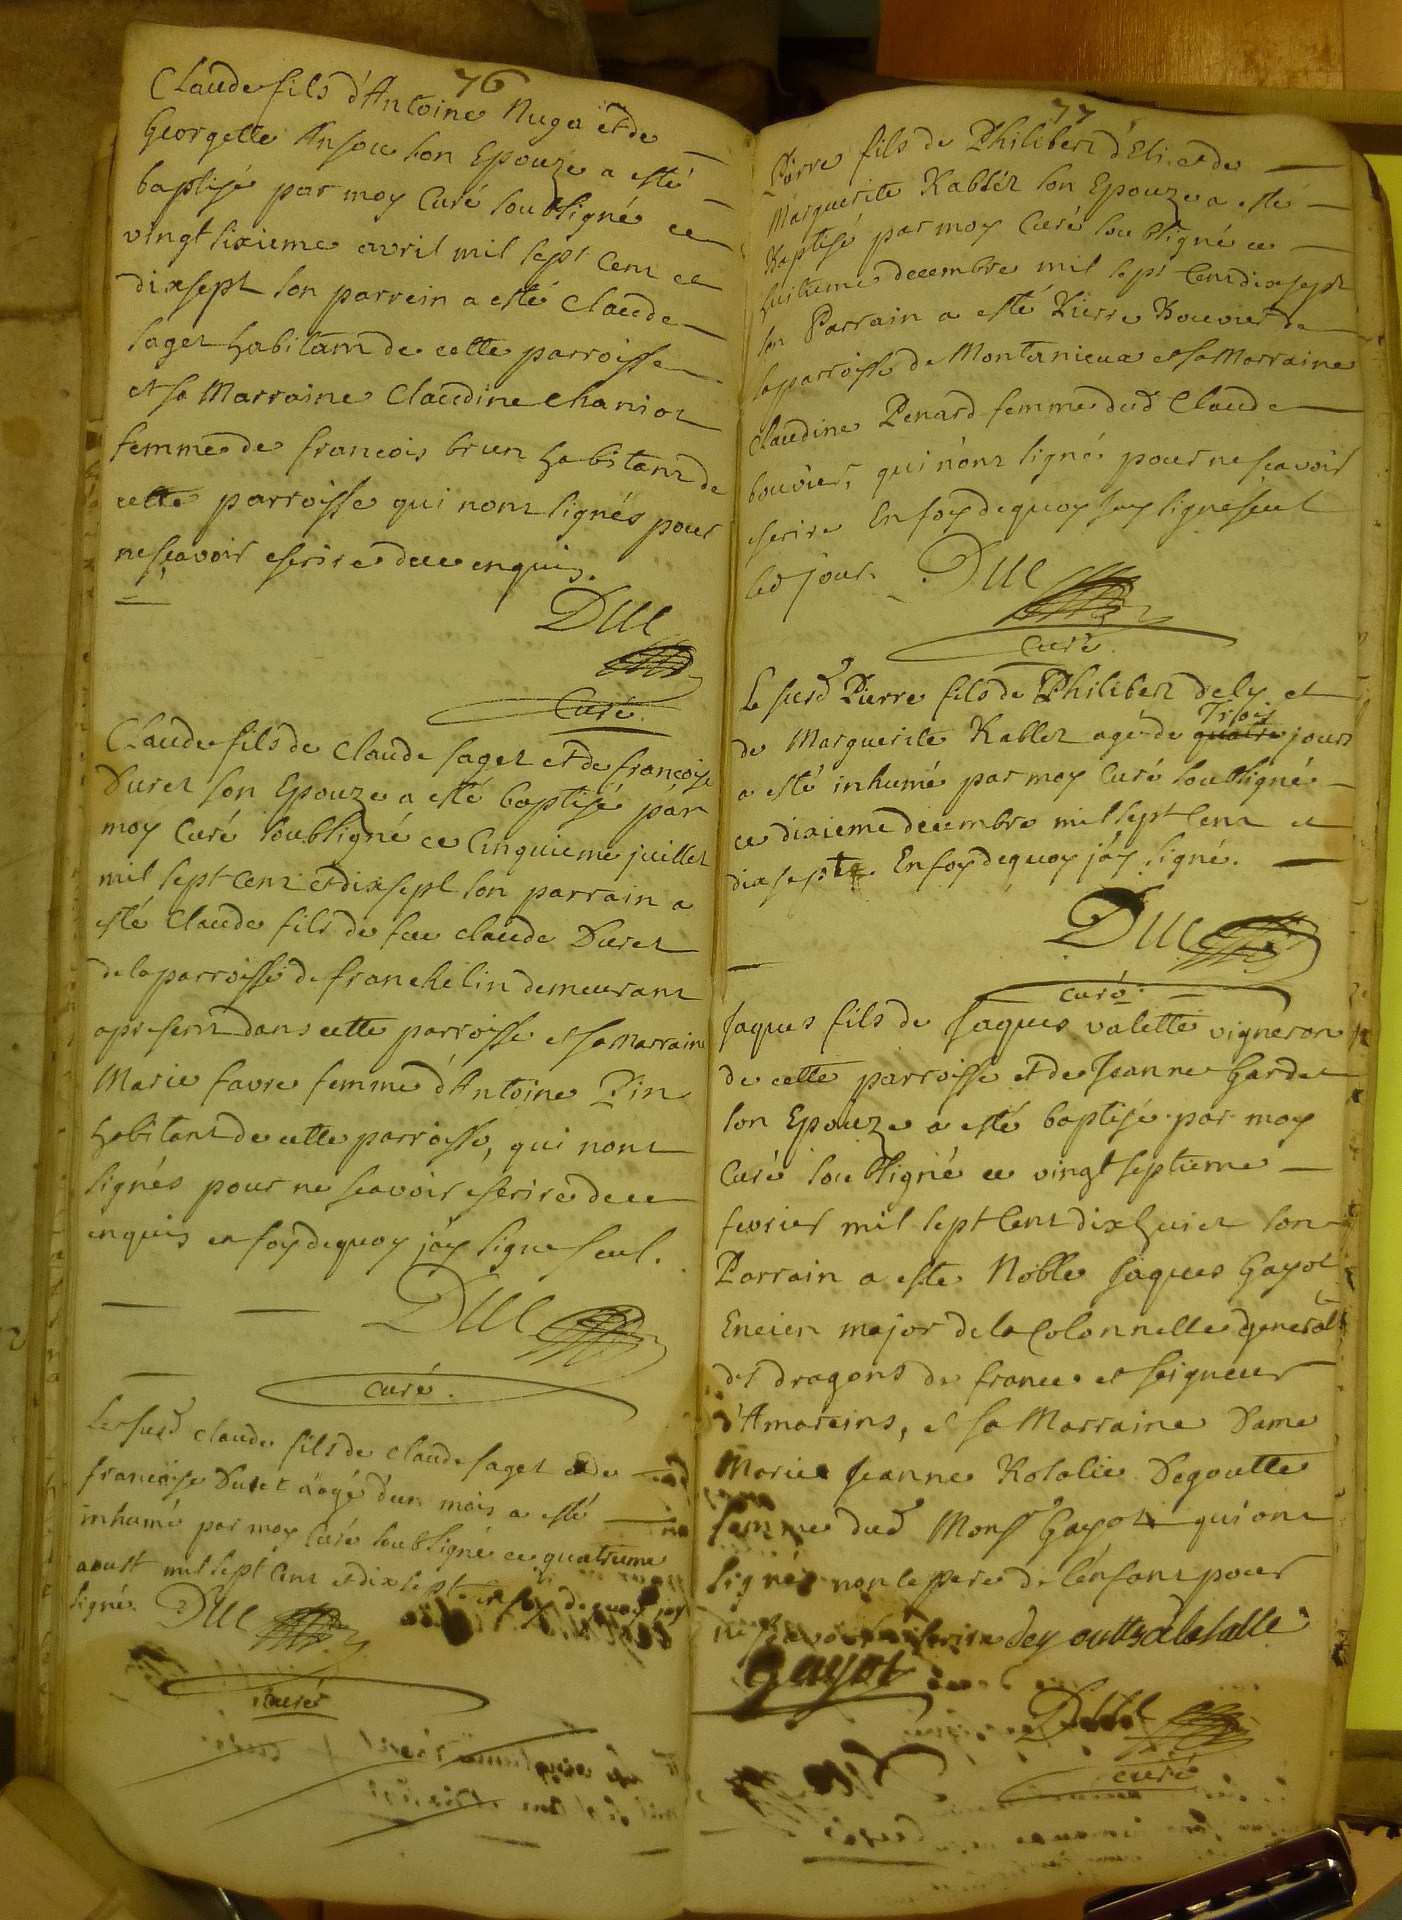 76
Claude fils d'Antoine Nuga et de
Georgette Anjou son Epouze a esté
baptisé par moy Curé soubsigné ce
vingt sixieme avril mil sept Cent et
dixsept son parrein a esté Claude
sages habitant de cette parroisse
et sa Marraine Claudine Chanior
femme de francois brun habitant de
cette parroisse qui nont signés pour
ne scavoir escrire de ce enquis.
Duc
Curé.
Claude fils de Claude sages et de francoise
Duret son Epouze a esté baptisé par
moy Curé soubsigné ce Cinquieme juillet
mil sept Cent et dixsept son parrain a
esté Claude fils de feu claude Duret
de la parroisse de franchelin demeurant
apresent dans cette parroisse et sa Marraine
Marie favre femme d'Antoine Pin
habitant de cette parroisse, qui nont
signés pour ne scavoir escrire de ce
enquis en foy dequoy j'ay signe seul.
Duc
curé.
Le susd claude fils de claude sages et de
francoise Duret aagé d'un mois a esté
inhumé par moy Curé soubsigné ce quatrieme
aoust mil sept Cent et dix sept en foy de quoy jay
signé. Duc
curé
77
Pierre fils de Philibert d'Eli et de
Marguerite Rabler son Epouze a esté
Baptisé par moy Curé soubsigné ce
huitieme decembre mil sept Cent dixsept
son Parrain a esté Pierre Bouvier de
la parroisse de Montanieux et sa Marraine
Claudine Penard femme dud Claude
bouvier, qui n'ont signé pour ne scavoir
escrire En foy dequoy j'ay signé seul
led jour. Duc
Curé.
Le susd Pierre fils de Philibert dely et
de Marguerite Rabler agé de quatre Trois jours
a esté inhumé par moy Curé soubsigné
ce dixieme decembre mil sept Cent et
dixsept. En foy dequoy j'ay signé.
Duc
curé.
Jaques fils de Jaques valette vigneron
de cette parroisse et de Jeanne Garde
son Epouze a esté baptisé par moy
Curé soubsigné ce vingt septieme
fevrier mil sept Cent dix huict son
Parrain a este Noble Jaques Gayot
Encien major de la Colonnelle general
des dragons de france et seigneur
d'Amareins, et sa Marraine Dame
Marie Jeanne Rosalie Degoutte
femme dud Mons Gayot qui ont
signés non le pere de l'enfant pour
ne scavoir escrire Dey outtes de la salle
Gayot
Duc
curé